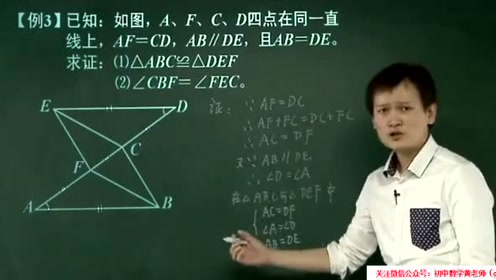 【例3】已知：如图，A、F、C、D四点在同一直
线上，AF=CD，AB∥DE，且AB=DE。
求证：⑴△ABC≌△DEF
⑵∠CBF=∠FEC。
E
D
C
F
A
B
证：∵AF=DC
∴AF+FC=DC+FC
∴AC=DF
又∵AB∥DE
∴∠D=∠A
在△ABC与△DEF中
AC=DF
∠A=∠D
AB=DE
关注微信公众号：初中数学黄老师